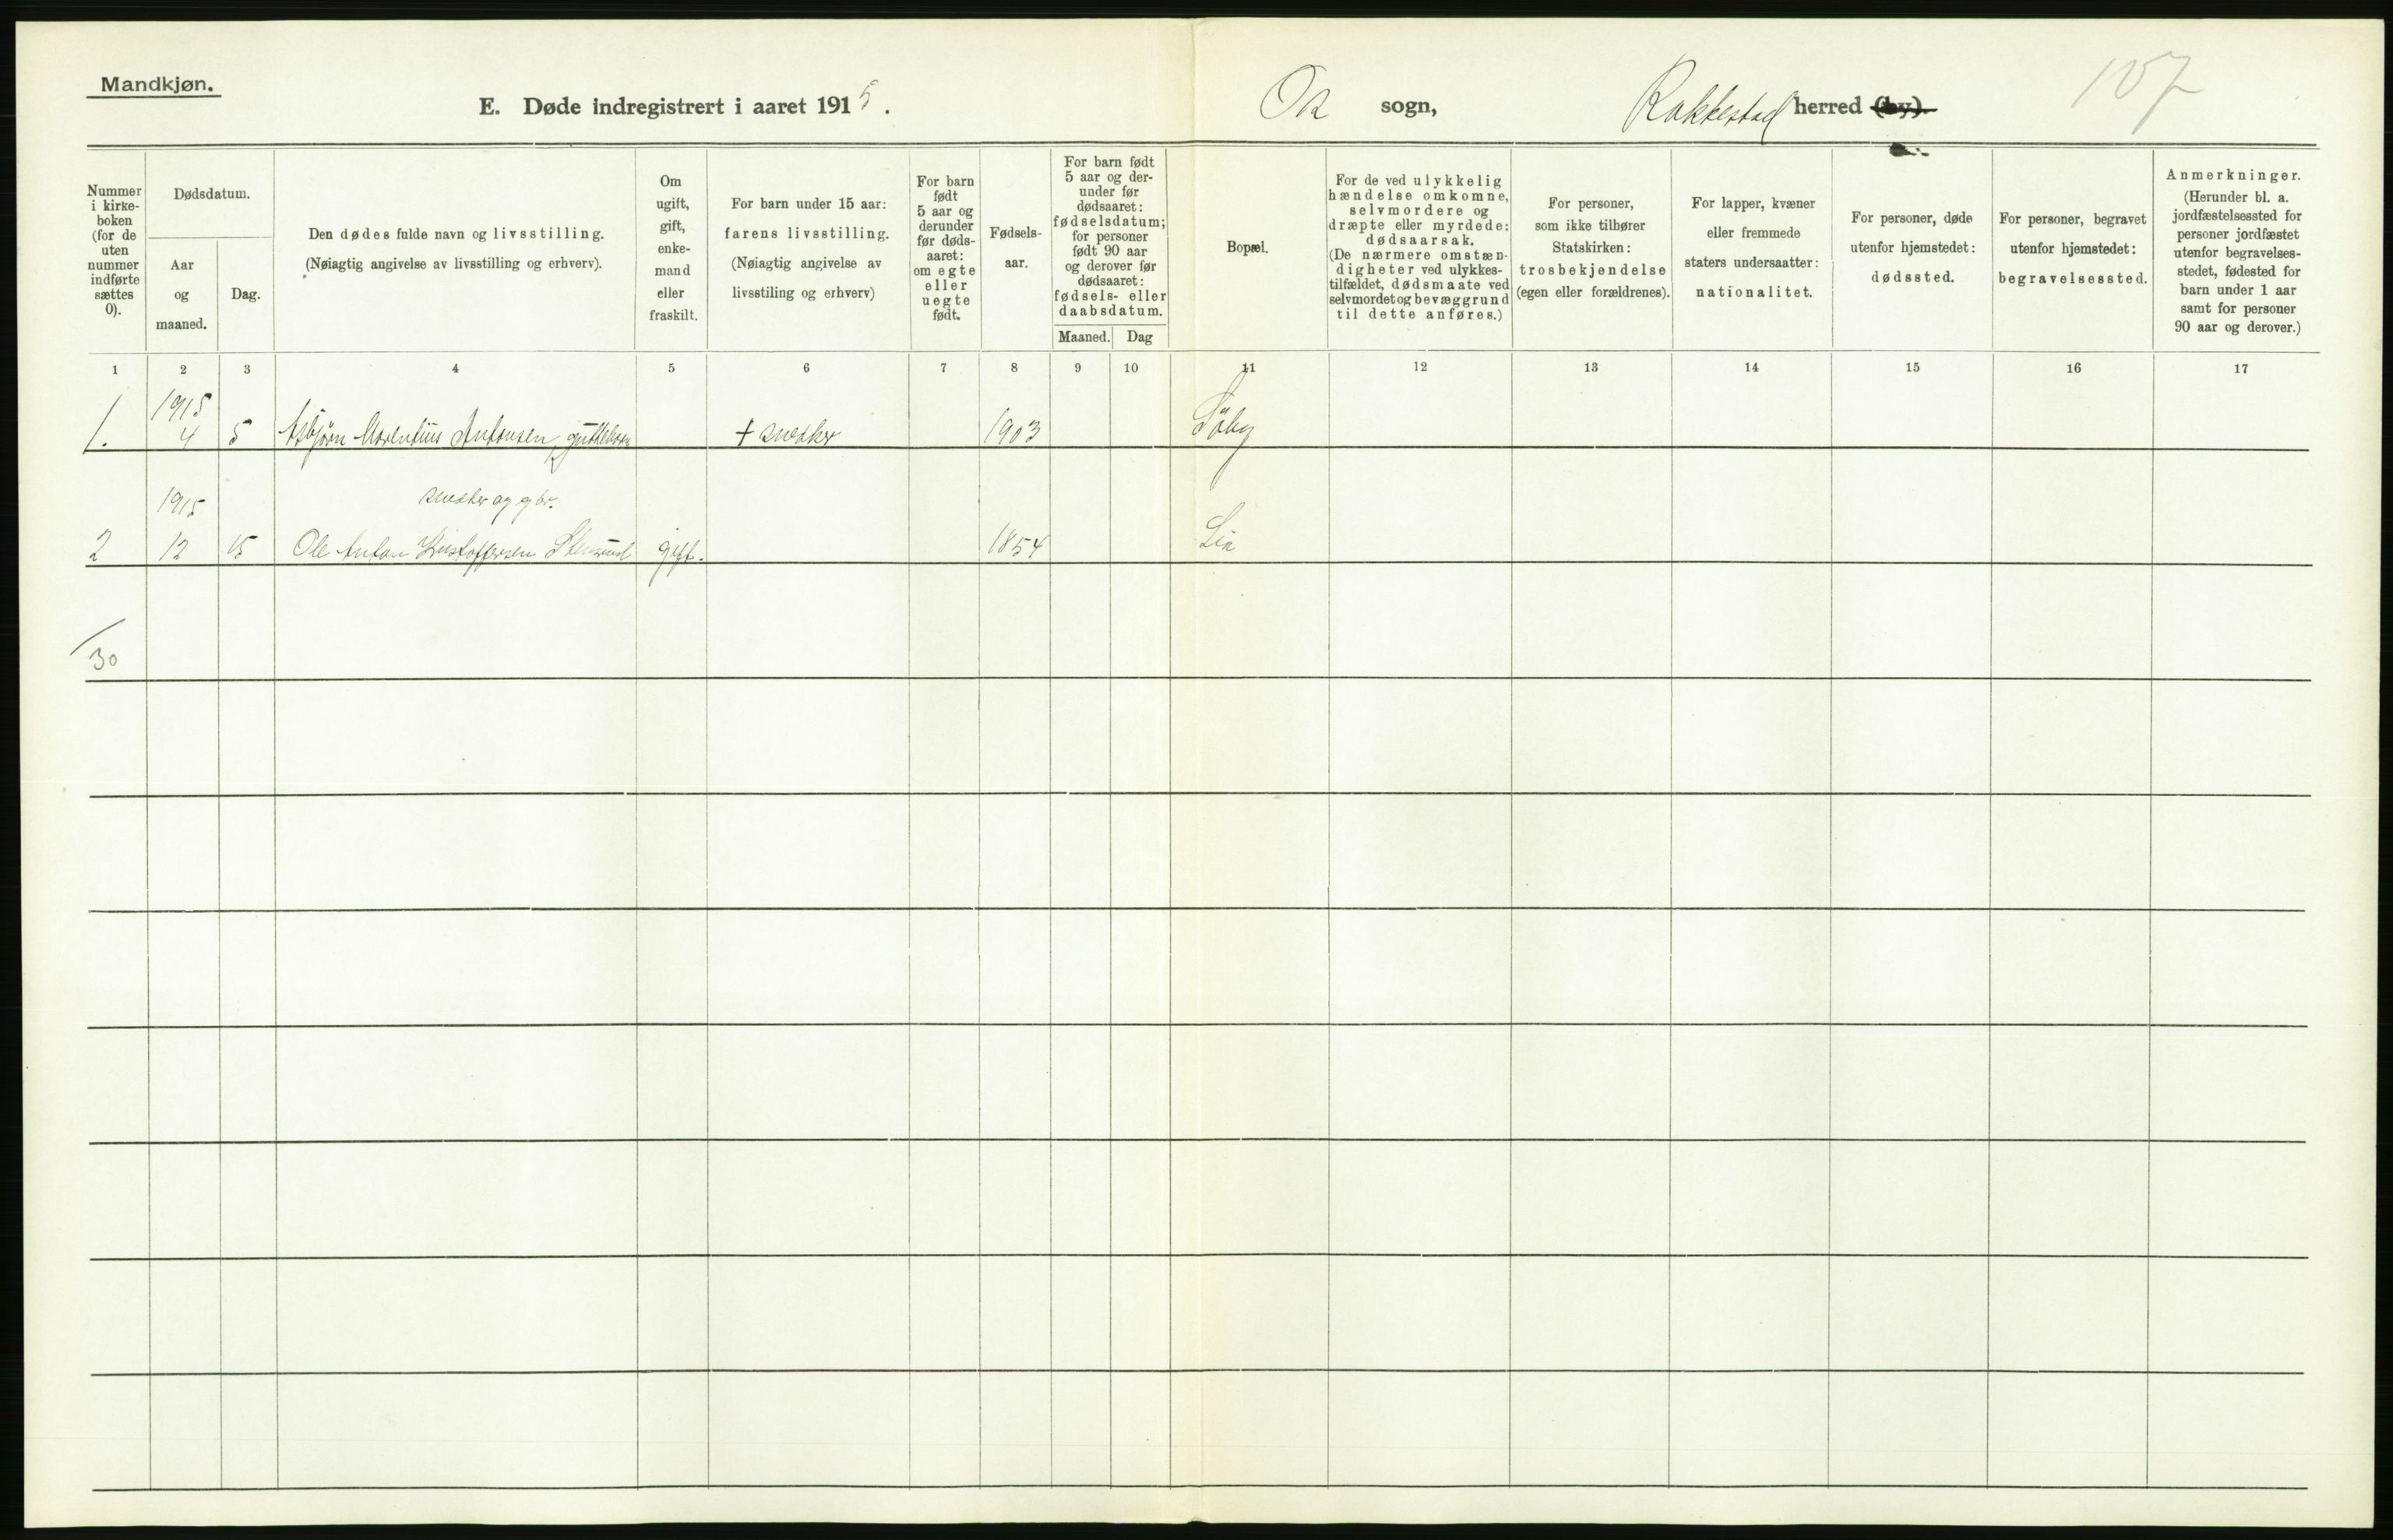 Mandkjøn.
E. Døde indregistrert i aaret 1915.
Os sogn,
Rakkestad herred (by).
107
Nummer i kirke-boken (for de uten nummer indførte sættes 0).
Dødsdatum.
Aar og maaned.
Dag.
Den dødes fulde navn og livsstilling.
(Nøiagtig angivelse av livsstilling og erhverv).
Om ugift, gift, enke-mand eller fraskilt.
For barn under 15 aar: farens livsstilling.
(Nøiagtig angivelse av livsstiling og erhverv)
For barn født 5 aar og derunder før døds-aaret: om egte eller uegte født.
Fødsels-aar.
For barn født 5 aar og der-under før dødsaaret: fødselsdatum; for personer født 90 aar og derover før dødsaaret: fødsels- eller daabsdatum.
Maaned.
Dag
Bopæl.
For de ved ulykkelig hændelse omkomne, selvmordere og dræpte eller myrdede: dødsaarsak.
(De nærmere omstæn-digheter ved ulykkes-tilfældet, dødsmaate ved selvmordet og bevæggrund til dette anføres.)
For personer, som ikke tilhører Statskirken: trosbekjendelse (egen eller forældrenes).
For lapper, kvæner eller fremmede staters undersaatter: nationalitet.
For personer, døde utenfor hjemstedet: dødssted.
For personer, begravet utenfor hjemstedet: begravelsessted.
Anmerkninger.
(Herunder bl. a. jordfæstelsessted for personer jordfæstet utenfor begravelses-stedet, fødested for barn under 1 aar samt for personer 90 aar og derover.)
1 2 3 4 5 6 7 8 9 10 11 12 13 14 15 16 17
1915
1. 4 5 Asbjørn Marentius Antonsen, guttebarn + snedker 1903 Söby
1915 snedker og gbr.
2 12 15 Ole Anton Kristoffersen Stensrud gift. 1854 Lia
30